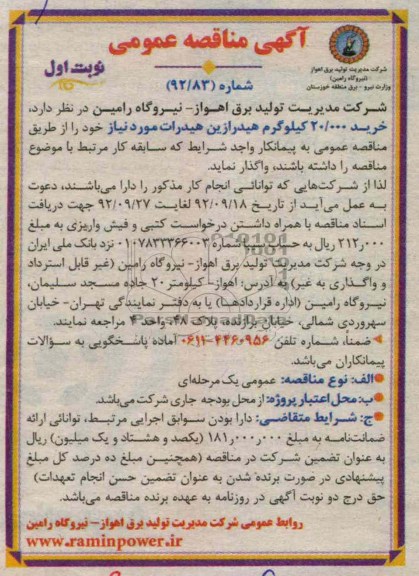 آگهی مناقصه عمومی
نوبت اول
شرکت مدیریت تولید برق اهواز
(نیروگاه رامین)
وزارت نیرو - برق منطقه خوزستان
شماره (۹۲/۸۳)
شرکت مدیریت تولید برق اهواز- نیروگاه رامین در نظر دارد،
خرید ۲۰/۰۰۰ کیلوگرم هیدرازین هیدرات مورد نیاز خود را از طریق
مناقصه عمومی به پیمانکار واجد شرایط که سابقه کار مرتبط با موضوع
مناقصه را داشته باشند، واگذار نماید.
لذا از شرکت‌هایی که توانائی انجام کار مذکور را دارا می‌باشند، دعوت
به عمل می‌آید از تاریخ ۹۲/۰۹/۱۸ لغایت ۹۲/۰۹/۲۷ جهت دریافت
اسناد مناقصه با همراه داشتن درخواست کتبی و فیش واریزی به مبلغ
۲۱۲٫۰۰۰ ریال به حساب شماره ۰۱۰۷۸۳۳۳۶۶۰۰۳ نزد بانک ملی ایران
در وجه شرکت مدیریت تولید برق اهواز- نیروگاه رامین (غیر قابل استرداد
و واگذاری به غیر) به آدرس: اهواز- کیلومتر ۲۰ جاده مسجد سلیمان،
نیروگاه رامین (اداره قراردادها) یا به دفتر نمایندگی تهران- خیابان
سهروردی شمالی، خیابان برازنده، پلاک ۴۸، واحد ۴ مراجعه نمایند.
ضمناً، شماره تلفن ۴۴۶۰۹۵۶-۰۶۱۱ آماده پاسخگویی به سؤالات
پیمانکاران می‌باشد.
الف: نوع مناقصه: عمومی یک مرحله‌ای
ب: محل اعتبار پروژه: از محل بودجه جاری شرکت می‌باشد.
ج: شرایط متقاضی: دارا بودن سوابق اجرایی مرتبط، توانائی ارائه
ضمانت‌نامه به مبلغ ۱۸۱٫۰۰۰٫۰۰۰ (یکصد و هشتاد و یک میلیون) ریال
به عنوان تضمین شرکت در مناقصه (همچنین مبلغ ده درصد کل مبلغ
پیشنهادی در صورت برنده شدن به عنوان تضمین حسن انجام تعهدات)
حق درج دو نوبت آگهی در روزنامه به عهده برنده مناقصه می‌باشد.
روابط عمومی شرکت مدیریت تولید برق اهواز- نیروگاه رامین
www.raminpower.ir